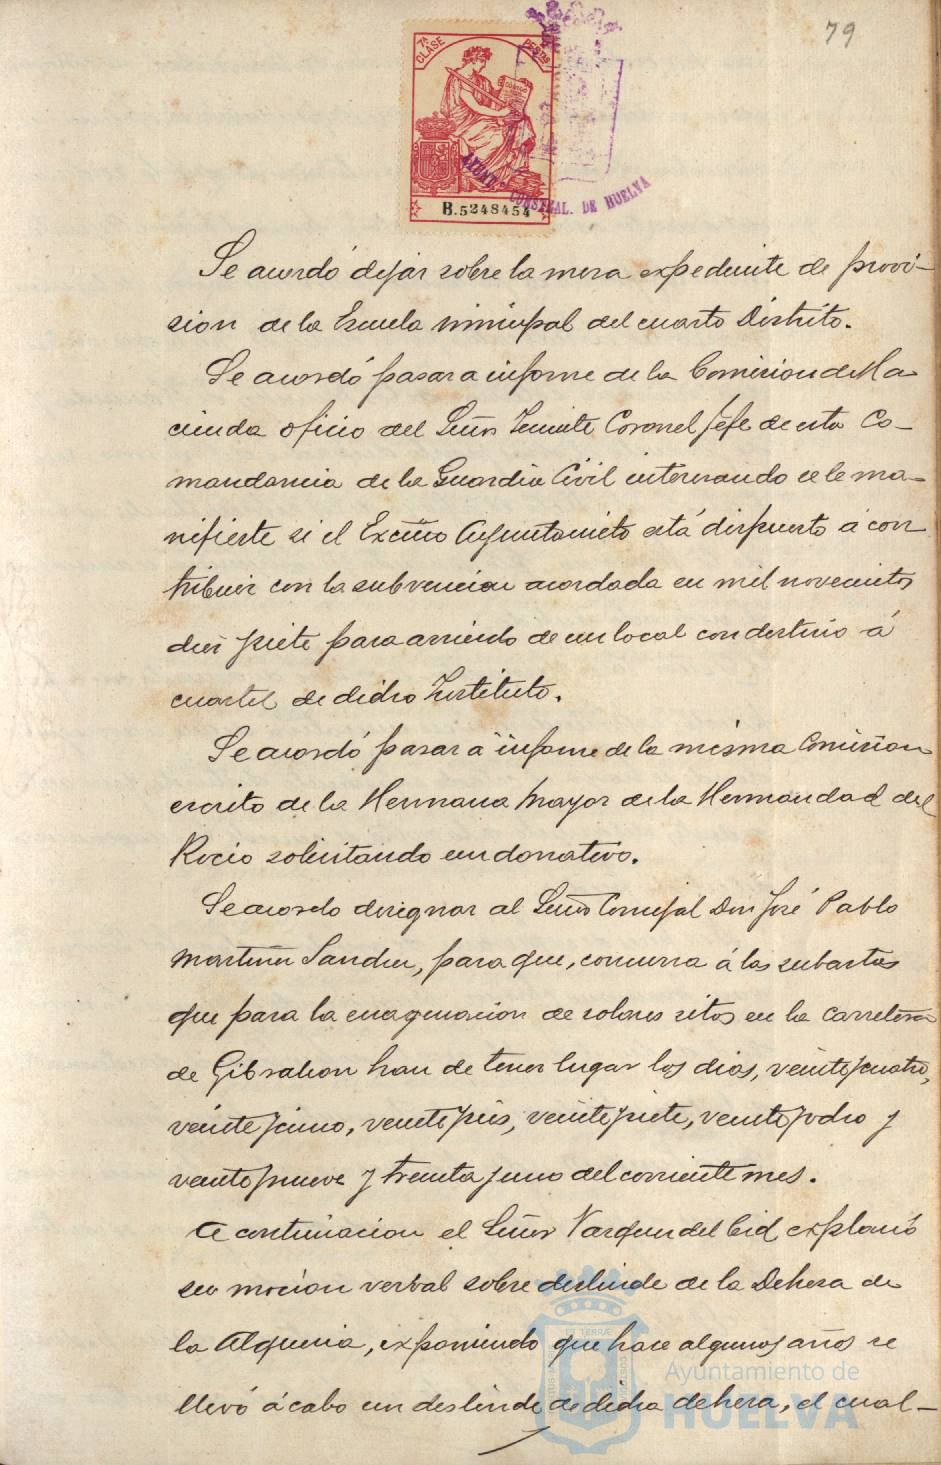 79
7ª CLASE PESETAS
B.5248454
AYUNT. CONSTZAL. DE HUELVA
Se acordó dejar sobre la mesa expediente de provi-
sion de la Escuela municipal del cuarto Distrito.
Se acordó pasar a informe de la Comision de Ha
cienda oficio del Señor Teniente Coronel Jefe de esta Co-
mandancia de la Guardia Civil interesando se le ma-
nifieste si el Excmo Ayuntamiento está dispuesto á con
tribuir con la subvencion acordada en mil novecientos
diez y siete para arriendo de un local con destino á
cuartel de dicho Instituto.
Se acordó pasar a informe de la misma Comision
escrito de la Hermana Mayor de la Hermandad del
Rocio solicitando un donativo.
Se acordo designar al Señor Concejal Don José Pablo
Martinez Sanchez, para que, concurra á las subastas
que para la enagenacion de solares sitos en la carretera
de Gibraleon han de tener lugar los dias, veinte y cuatro,
veinte y cinco, veinte y seis, veinte y siete, veinte y ocho y
veinte y nueve y treinta y uno del corriente mes.
A continuacion el Señor Vazquez del Cid explanó
su mocion verbal sobre deslinde de la Dehesa de
la Alqueria, exponiendo que hace algunos años se
llevó á cabo un deslinde de dicha dehesa, el cual-
Ayuntamiento de
HUELVA